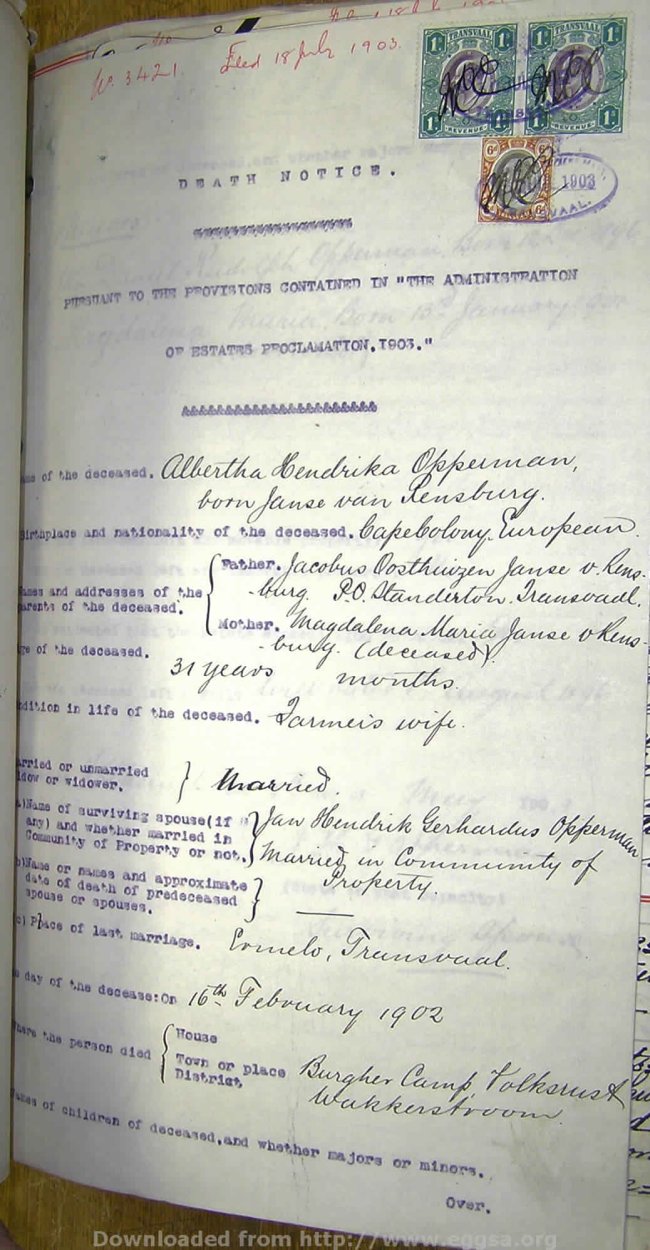 No. 3421. Filed 18 July 1903.
TRANSVAAL
REVENUE
1903
DEATH NOTICE.
PURSUANT TO THE PROVISIONS CONTAINED IN "THE ADMINISTRATION
OF ESTATES PROCLAMATION, 1903."
&&&&&&&&&&&&&&&&&&&&&&
of the deceased. Albertha Hendrika Opperman,
born Janse van Rensburg.
Birthplace and nationality of the deceased. Cape Colony. European.
Names and addresses of the parents of the deceased.
Father. Jacobus Oosthuizen Janse v. Rens-
-burg. P.O. Standerton. Transvaal.
Mother. Magdalena Maria Janse v Rens-
-burg. (deceased).
of the deceased.
31 years months.
Condition in life of the deceased. Farmer's wife.
Married or unmarried
widow or widower. Married.
a) Name of surviving spouse (if
any) and whether married in
Community of Property or not.
Jan Hendrik Gerhardus Opperman
Married in Community of
Property.
b) Name or names and approximate
date of death of predeceased
spouse or spouses. —
c) Place of last marriage. Ermelo, Transvaal.
day of the decease: On 16th February 1902
Where the person died
House
Town or place
District
Burgher Camp, Volksrust
Wakkerstroom.
Names of children of deceased, and whether majors or minors.
Over.
Downloaded from http://www.eggsa.org